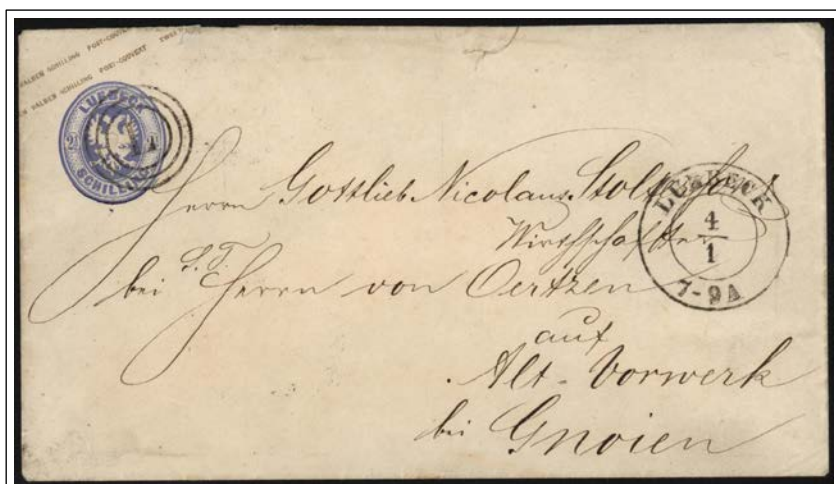 VALBEN SCHILLING POST-COUVERT
VALBEN SCHILLING POST-COUVERT
LUEBECK
2½
SCHILLING
Herrn Gottlieb Nicolaus
LÜBECK
4
1
7-9A
Wirthschafter
bei S. T. Herrn von Oertzen
auf
Alt-Vorwerk
bei Gnoien